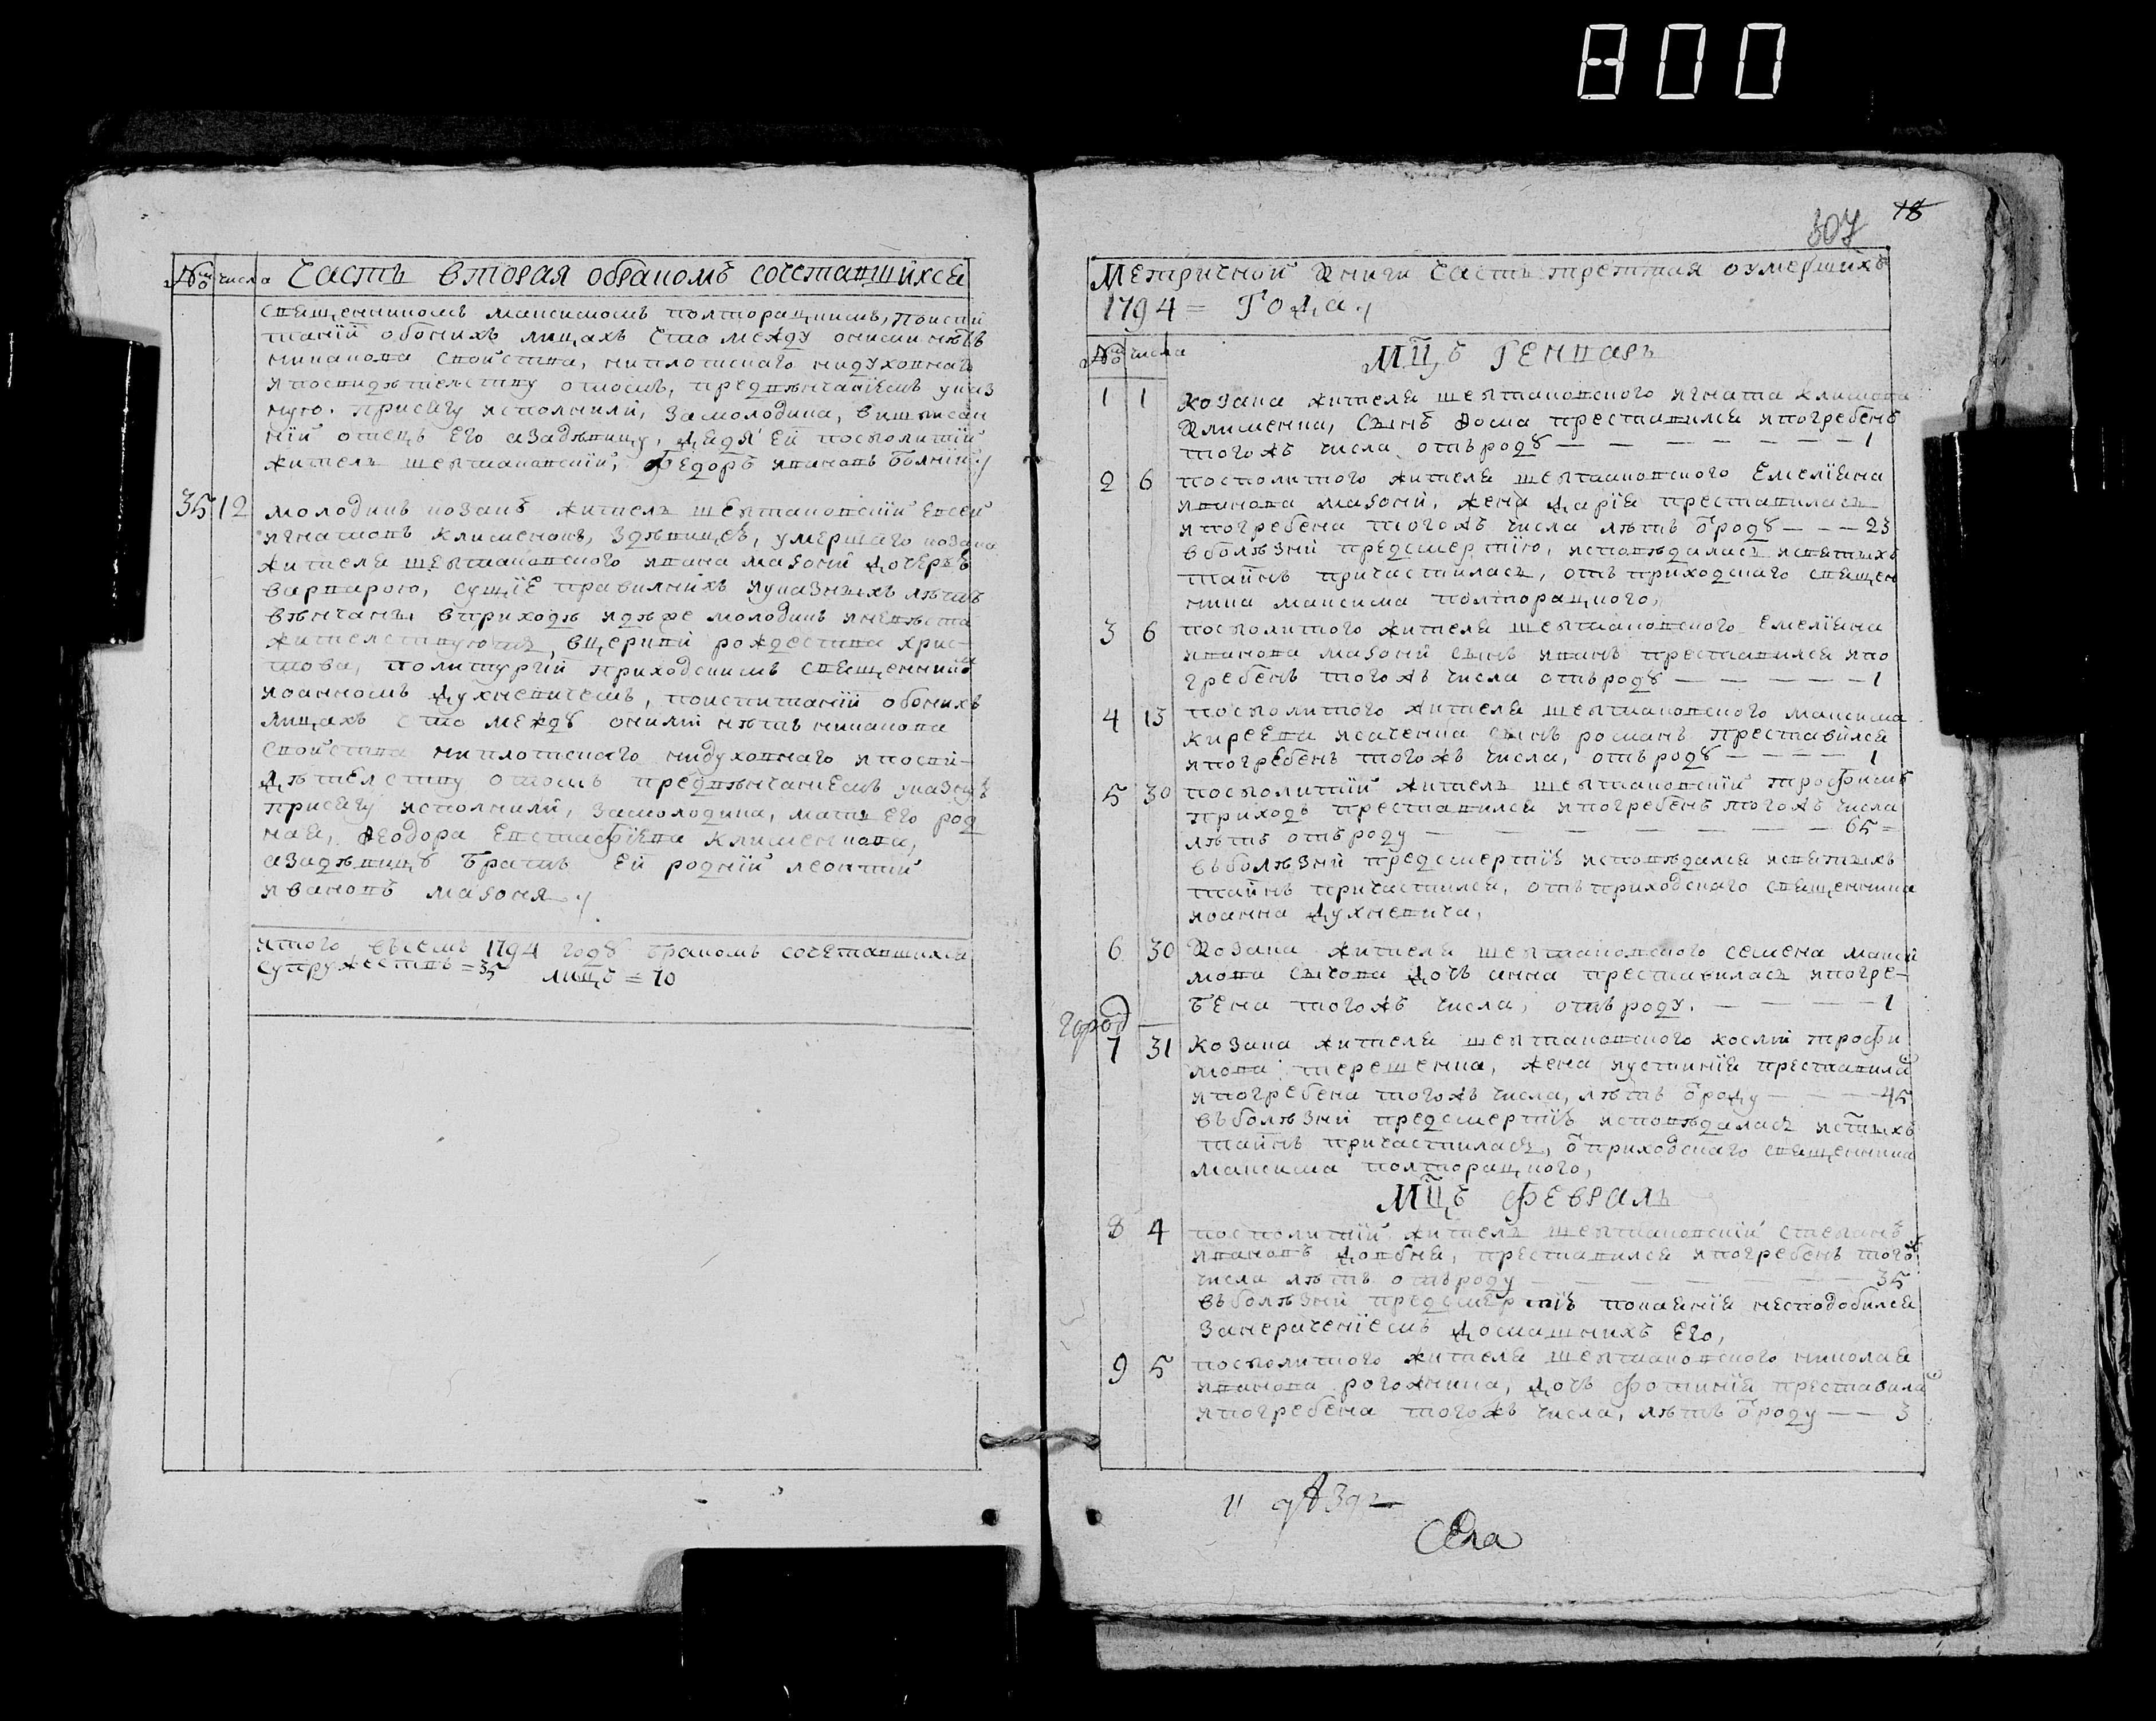 800
№ числа Часть вторая обракомъ сочетавшихся
священникомъ максимомъ полторацкимъ, поиспи
танїи обоихъ лицахъ что между оними нѣтъ
никакова свойства, ниплотскаго нидуховнаго
ипосвидѣтелству отомъ, предвѣнчанїемъ указ
ную присягу исполнили, замолодика, вишписан
нїй отецъ его азадѣвицу, дядя ей посполитїй
житель шептаковскїй, федоръ ивановъ
35 12 молодикъ козакъ житель шептаковскїй евсей
игнатовъ клименокъ, здѣвицеѣ, умершаго козака
жителя шептаковского ивана мазоки дочерью
варварою, сущїе правилнихъ иуказныхъ лѣтъ
вѣнчаны вприходѣ идѣже молодикъ иневѣста
жителствуютъ, вцеркви рождества хрис-
това, политургїи приходскимъ священникомъ
иоанномъ духневичемъ, поиспитанїи обоихъ
лицахъ что между оними нѣтъ никакова
свойства ниплотскаго нидуховнаго ипосви-
дѣтелству отомъ предвѣнчанїемъ указную
присягу исполнили, замолодика, мать его род
ная, Феодора евстафїева клименкова,
азадѣвицѣ братъ ей роднїй леонтїй
ивановъ мазока
итого въсемъ 1794 годѣ бракомъ сочетавшихся
супружествъ = 35 лицъ = 70
18
307
Метричной Книги Часть третїая оумершихъ
1794 = Года
№ числа
Мцъ Генварь
1 1 козака жителя шептаковского игната климова
Клименка, сынъ Фома преставился ипогребенъ
тогожъ числа отъ родѣ — 1
2 6 посполитого жителя шептаковского емелїана
иванова мазоки, жена дарїя преставилась
ипогребена тогожъ числа лѣтъ ѿ родѣ — 23
вболѣзни предсмертїю, исповѣдалась исвятыхъ
тайнъ причастилась, отъ приходскаго священ
ника максима полторацкого,
3 6 посполитого жителя шептаковского емелїана
иванова мазоки сынъ иванъ преставился ипо
гребенъ тогожъ числа отъ родѣ — 1
4 13 посполитого жителя шептаковского максима
киреева исаченка сынъ романъ преставился
ипогребенъ тогожъ числа, отъ родѣ — 1
5 30 посполитїй житель шептаковскїй трофимъ
приходъ преставился ипогребенъ тогожъ числа
лѣтъ отъ роду — 65 =
въболѣзни предсмертїѣ исповѣдался исвятыхъ
тайнъ причастился, отъ приходскаго священника
иоанна духневича,
6 30 Козака жителя шептаковского семена макси
мова сичова дочь анна преставилась ипогре-
бена тогожъ числа, отъ роду. — 1
7 31 козака жителя шептаковского космы трофи
мова терешенка, жена иустинїя преставилась
ипогребена тогожъ числа, лѣтъ ѿ роду — 45
въболѣзни предсмертїѣ исповѣдалась истыхъ
тайнъ причастилась, ѿ приходскаго священника
максима полторацкого,
Мцъ Февраль
8 4 посполитїй житель шептаковскїй степанъ
ивановъ довбня, преставился ипогребенъ тогожъ
числа лѣтъ отъ роду — 35
въболѣзни предсмертїѣ покаянїя несподобился
занераченїемъ домашнихъ его,
9 5 посполитого жителя шептаковского николая
иванова рогожника, дочь фотинїя преставилас
ипогребена тогожъ числа, лѣтъ ѿ роду — 3